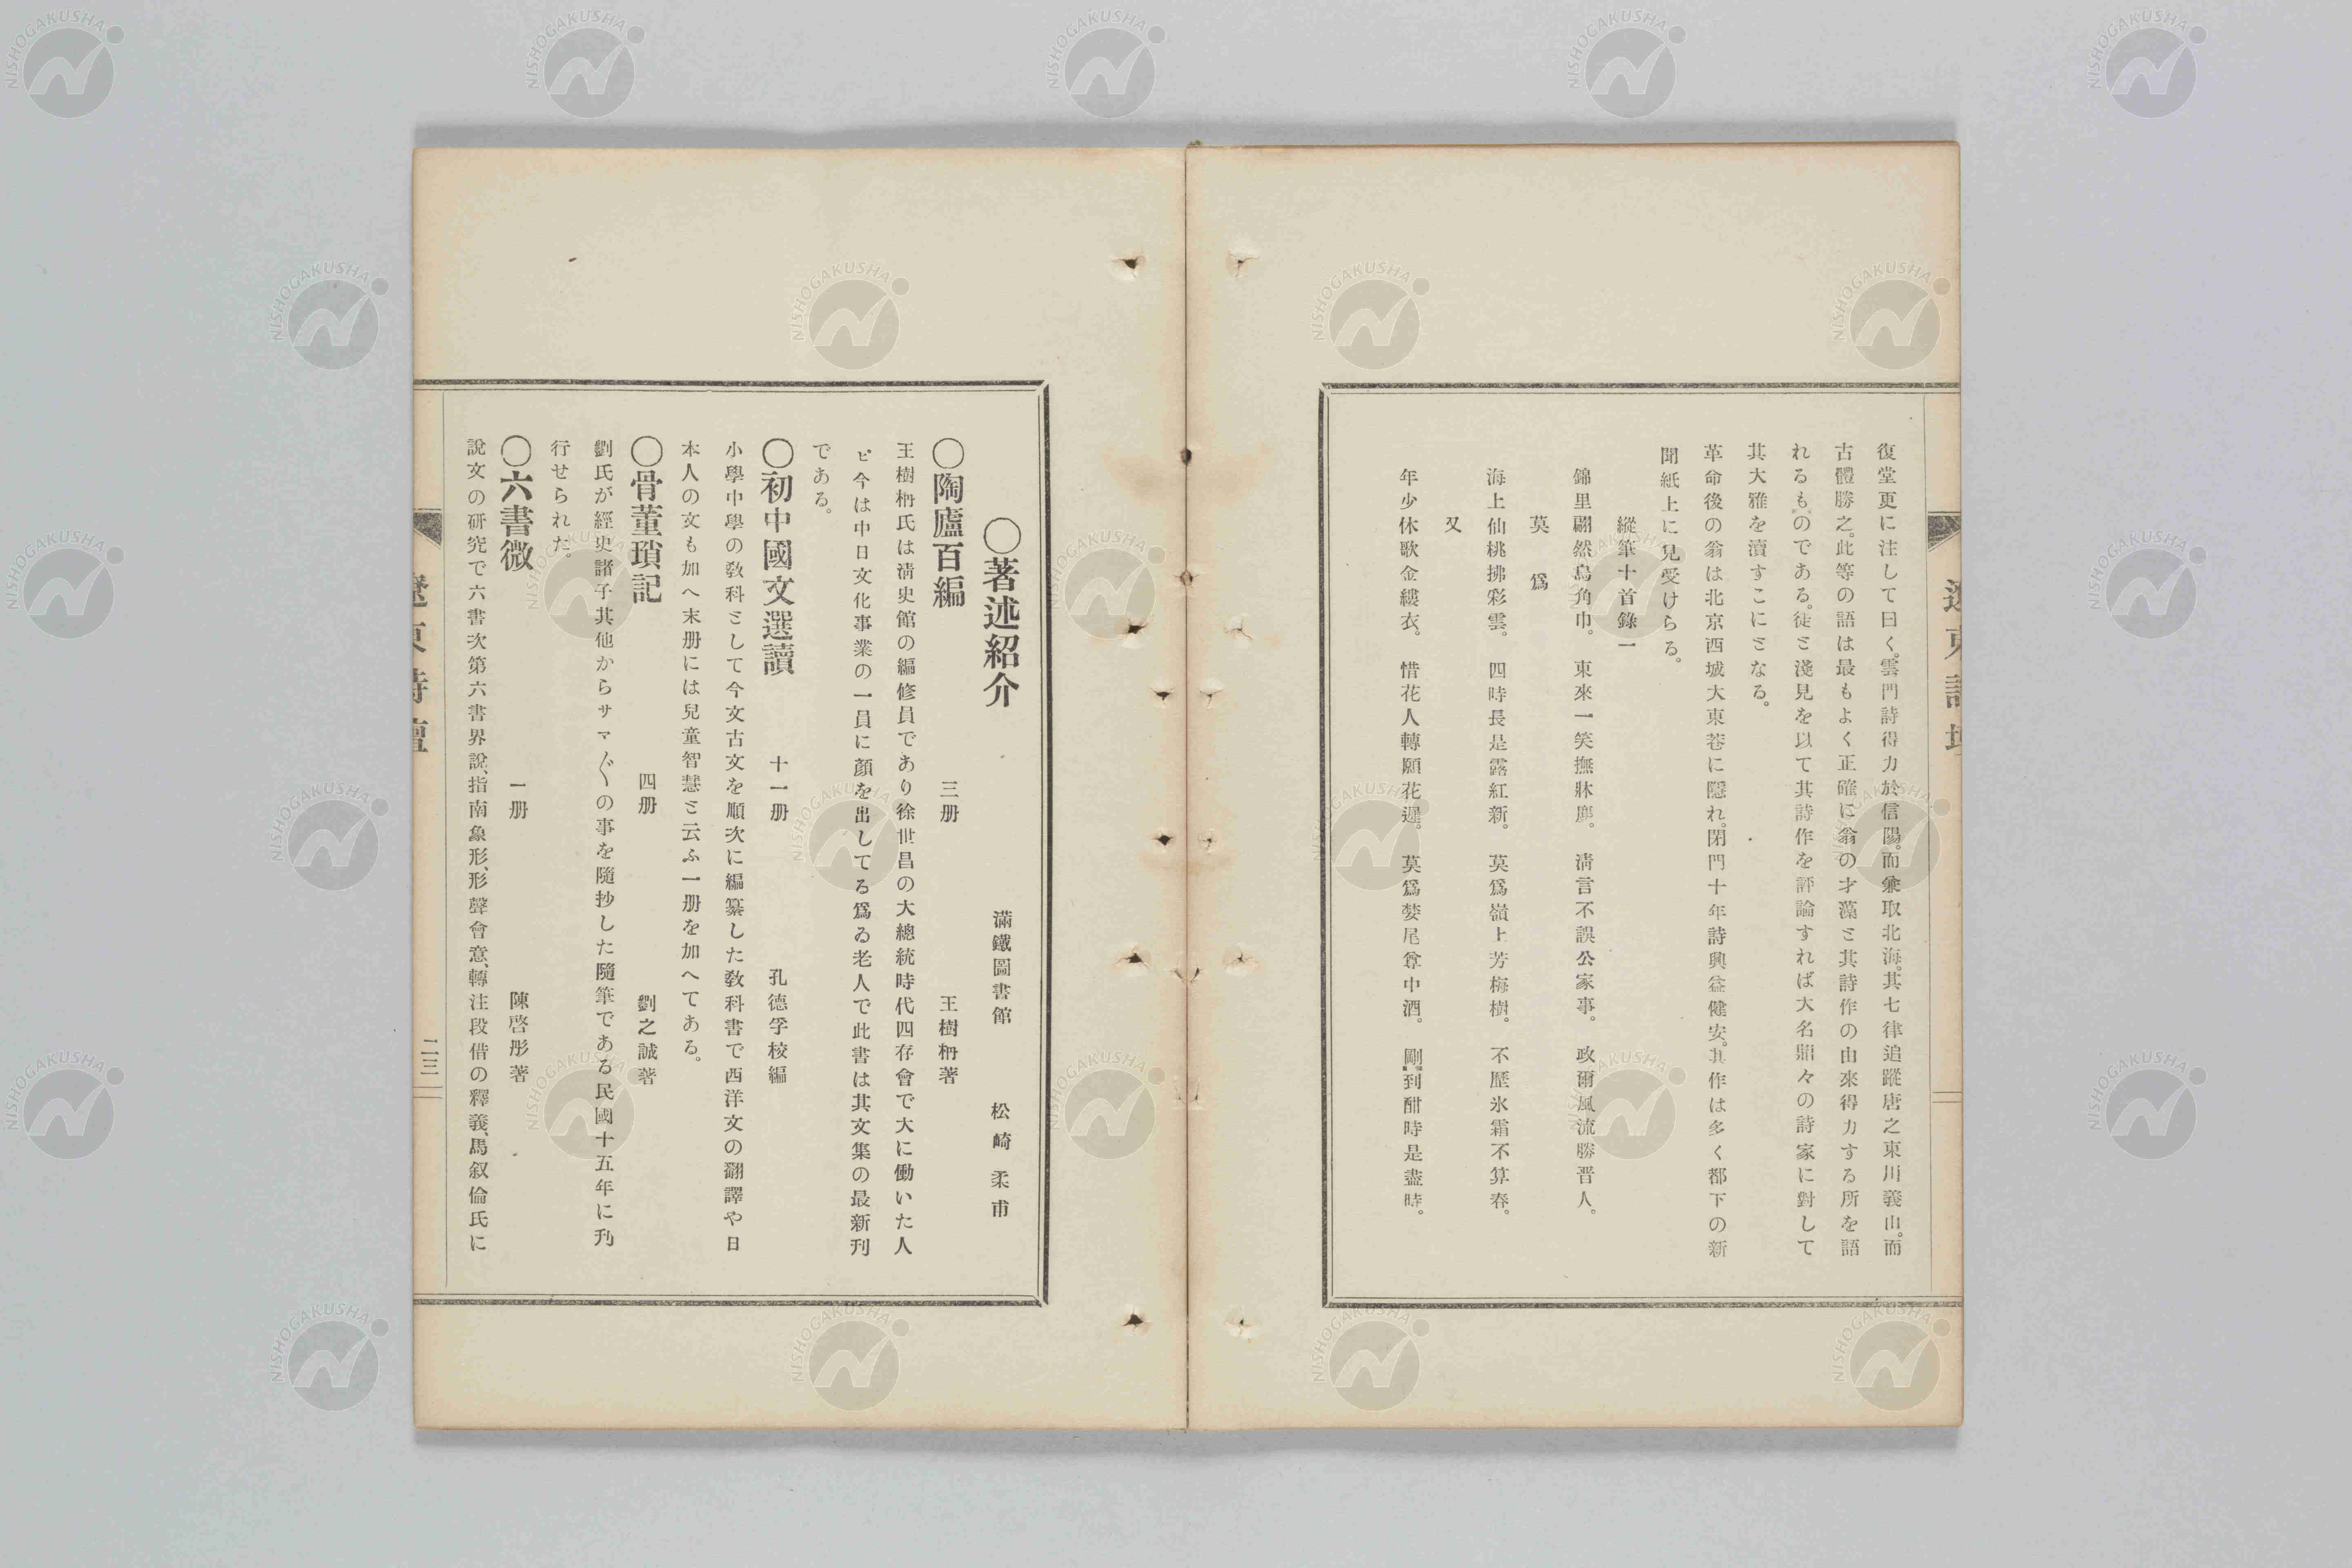 復堂更に注して曰く。雲門詩得力於信陽。而兼取北海。其七律追蹤唐之東川義山。而
古體勝之。此等の語は最もよく正確に翁の才藻と其詩作の由來得力する所を語
れるものである。徒と淺見を以て其詩作を評論すれば大名赫々の詩家に對して
其大雅を瀆すこにとなる。
革命後の翁は北京西城大東巷に隱れ。閉門十年詩興益健安。其作は多く都下の新
聞紙上に見受けらる。
縱筆十首錄一
錦里翩然烏角巾。 東來一笑撫牀塵。 淸言不誤公家事。 政爾風流勝晋人。
莫爲
海上仙桃拂彩雲。 四時長是露紅新。 莫爲嶺上芳梅樹。 不歷氷霜不算春。
又
年少休歌金縷衣。 惜花人轉願花遲。 莫爲婪尾尊中酒。 剛到酣時是盡時。
〇著述紹介 滿鐵圖書館 松崎柔甫
〇陶廬百編 三册 王樹枏著
王樹枏氏は淸史館の編修員であり徐世昌の大總統時代四存會で大に働いた人
ピ今は中日文化事業の一員に顔を出してる爲ゐ老人で此書は其文集の最新刊
である。
〇初中國文選讀 十一册 孔德學校編
小學中學の敎科として今文古文を順次に編纂した敎科書で西洋文の翻譯や日
本人の文も加へ末册には兒童智慧と云ふ一册を加へてある。
〇骨董瑣記 四册 劉之誠著
劉氏が經史諸子其他からサマ〴〵の事を隨抄した隨筆である民國十五年に刋
行せられた。
〇六書微 一册 陳啓彤著
說文の研究で六書次第六書界說、指南象形、形聲會意、轉注段借の釋義、馬叙倫氏に
遼東詩壇
二三